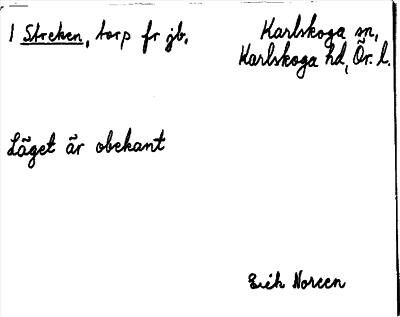 1 Streken, torp fr jb.
Karlskoga sn,
Karlskoga hd, Ör. l.
Läget är obekant
Erik Noreen